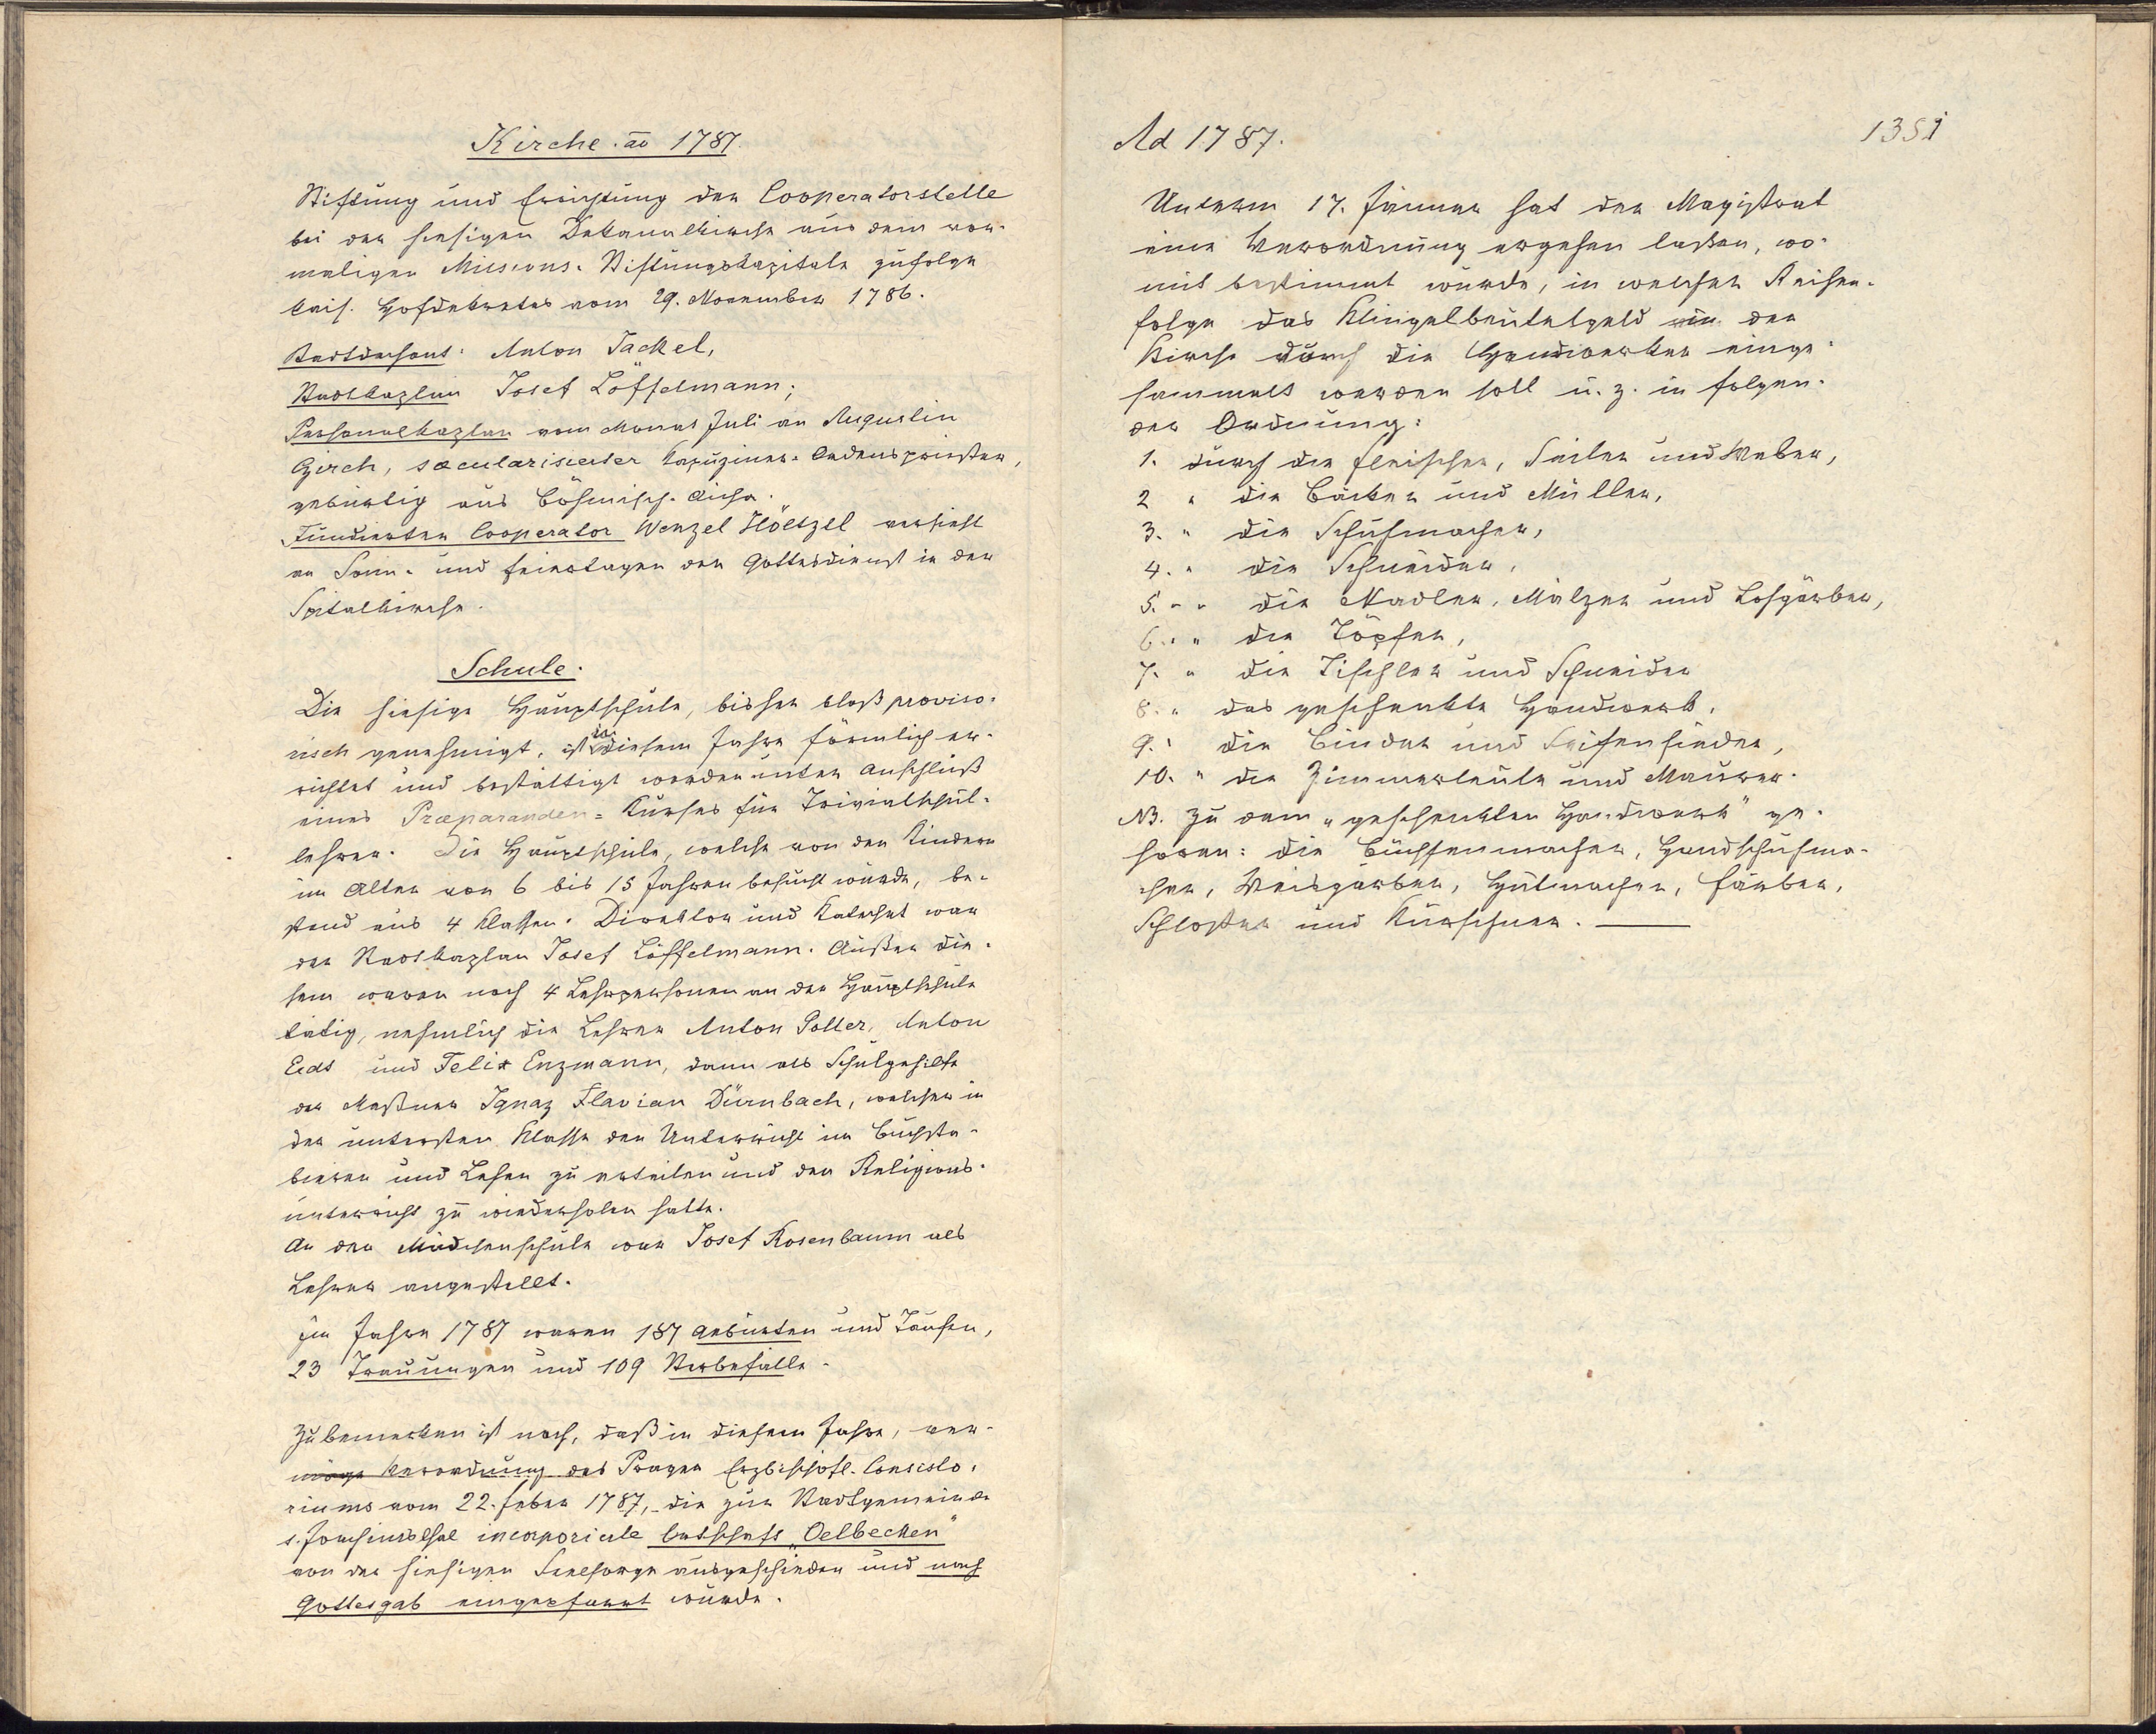 Kirche. ao 1787.
Stiftung und Errichtung der Cooperatorstelle
bei der hiesigen Dekanalkirche aus dem vor-
maligen Missions-Stiftungskapitale zufolge
kais. Hofdekretes vom 29. November 1786.
Stadtdechant: Anton Jackel,
Stadtkaplan Josef Löffelmann;
Personalkaplan vom Monat Juli an Augustin
Girch, sæcularisierter Kapuziner-Ordenspriester,
gebürtig aus Böhmisch-Aicha.
Fundierter Cooperator Wenzel Höltzel versieht
an Sonn- und Feiertagen den Gottesdienst in der
Spitalkirche.
Schule.
Die hiesige Hauptschule, bisher bloß proviso-
risch genehmigt, ist in diesem Jahre förmlich er-
richtet und bestättigt worden unter Anschluß
eines Præparanden-Kurses für Trivialschul-
lehrer. Die Hauptschule, welche von den Kindern
im Alter von 6 bis 15 Jahren besucht wurde, be-
stand aus 4 Klassen. Direktor und Katechet war
der Stadtkaplan Josef Löffelmann. Außer die-
sem waren noch 4 Lehrpersonen an der Hauptschule
tätig, nehmlich die Lehrer Anton Poller, Anton
Eidt und Felix Enzmann, dann als Schulgehilfe
der Meßner Ignaz Flavian Dürnbach, welcher in
der untersten Klasse den Unterricht im Buchsta-
bieren und Lesen zu erteilen und den Religions-
unterricht zu wiederholen hatte.
An der Mädchenschule war Josef Rosenbaum als
Lehrer angestellt.
Im Jahre 1787 waren 187 Geburten und Taufen,
23 Trauungen und 109 Sterbefälle.
Zu bemerken ist noch, daß in diesem Jahre, ver-
möge Verordnung des Prager Erzbischöfl. Consisto-
riums vom 22. Feber 1787, die zur Stadtgemeinde
s. Joachimsthal incorporierte Ortschaft „Oelbecken"
von der hiesigen Seelsorge ausgeschieden und nach
Gottesgab eingepfarrt wurde.
Ad 1787.
1351
Unterm 17. Jänner hat der Magistrat
eine Verordnung ergehen laßen, wo-
mit bestimmt wurde, in welcher Reihen-
folge das Klingelbeutelgeld in der
Kirche durch die Handwerker einge-
sammelt werden soll u. z. in folgen-
der Ordnung:
1. durch die Fleischer, Seiler und Weber,
2 " die Bäcker und Müller,
3. " die Schuhmacher,
4. " die Schneider,
5. " " die Nadler, Mälzer und Lohgärber,
6. " " die Töpfer,
7. " die Tischler und Schneider
8. " das geschenkte Handwerk,
9. " die Binder und Seifensieder,
10. " die Zimmerleute und Maurer.
NB. Zu dem „geschenkten Handwerk" ge-
hören: die Büchsenmacher, Handschuhma-
cher, Weisgärber, Hutmacher, Färber,
Schlosser und Kürschner.